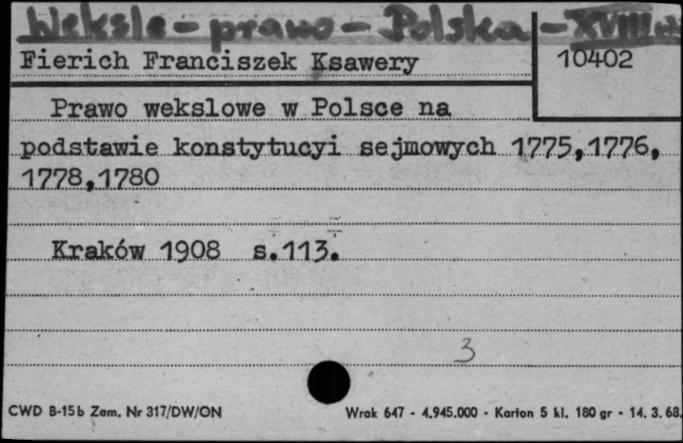 Weksle - prawo - Polska - XVIII w.
Fierich Franciszek Ksawery
10402
Prawo wekslowe w Polsce na
podstawie konstytucyi sejmowych 1775,1776,
1778,1780
Kraków 1908 s.113.
3
CWD B-15b Zam. Nr 317/DW/ON
Wrak 647 - 4.945.000 - Karton 5 kl. 180 gr - 14. 3. 68.